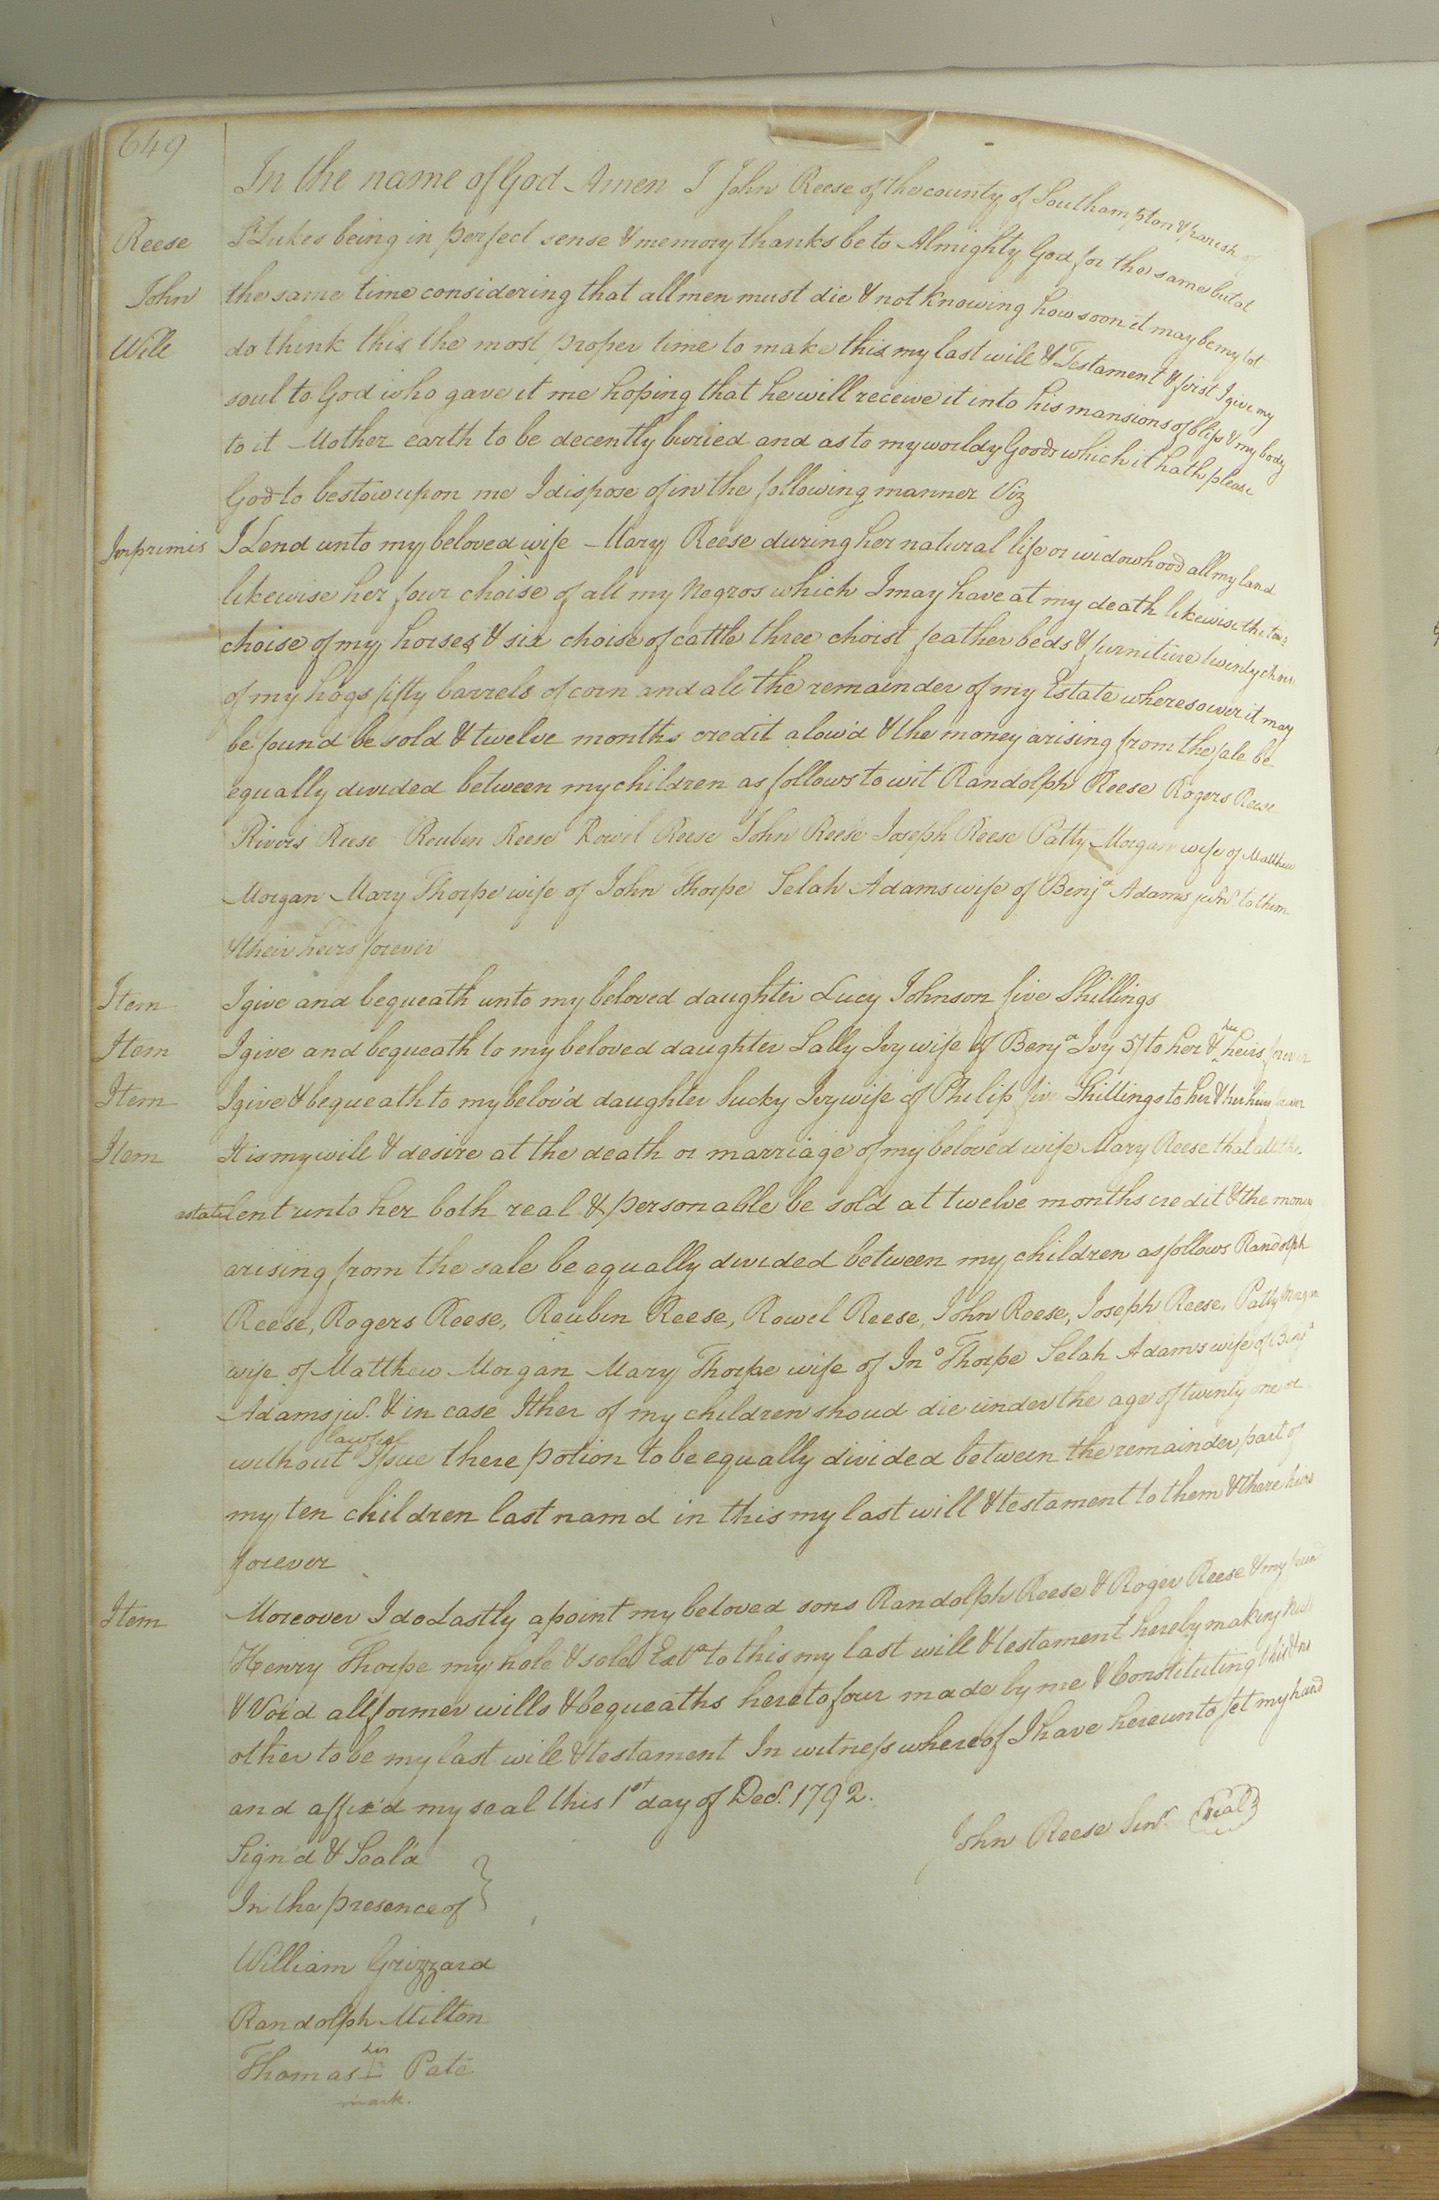 649
In the name of God Amen I John Reese of the county of Southampton & parish of
Reese St Lukes being in perfect sense & memory thanks be to Almighty God for the same but at
John the same time considering that all men must die & not knowing how soon it may be my lot
Will do think this the most proper time to make this my last will & Testament & first I give my
soul to God who gave it me hoping that he will receive it into his mansions of bliss & my body
to it Mother earth to be decently buried and as to my worldy Goods which it hath please
God to bestow upon me I dispose of in the following manner Viz
Inprimis I Lend unto my beloved wife Mary Reese during her natural life or widowhood all my land
likewise her four choise of all my Negros which I may have at my death likewise the two
choise of my horses & six choise of cattle three choist feather beds & furniture twenty choise
of my hogs fifty barrels of corn and all the remainder of my Estate wheresower it may
be found be sold & twelve months credit alow'd & the money arising from the sale be
equally divided between my children as follows to wit Randolph Reese Rogers Reese
Rivers Reese Reuben Reese Rowel Reese John Reese Joseph Reese Patty Morgan wife of Matthew
Morgan Mary Thorpe wife of John Thorpe Selah Adams wife of Benja Adams junr. to them
& their heirs forever
Item I give and bequeath unto my beloved daughter Lucy Johnson five Shillings
Item I give and bequeath to my beloved daughter Sally Ivy wife of Benja Ivy 5/ to her & her heirs forever
Item I give & bequeath to my belov'd daughter Sucky Ivy wife of Philip five Shillings to her & her heirs forever
Item It is my will & desire at the death or marriage of my beloved wife Mary Reese that all the
astate lent unto her both real & personable be sold at twelve months credit & the money
arising from the sale be equally divided between my children as follows Randolph
Reese, Rogers Reese, Reuben Reese, Rowel Reese, John Reese, Joseph Reese, Patty Morgan
wife of Matthew Morgan Mary Thorpe wife of Jno Thorpe Selah Adams wife of Benja
Adams jur. & in case Ither of my children shoud die under the age of twenty one or
without lawful Issue there potion to be equally divided between the remainder part of
my ten children last namd in this my last will & testament to them & there heirs
forever
Item Moreover I do Lastly apoint my beloved sons Randolph Reese & Roger Reese & my friend
Henry Thorpe my hole & sole Exta to this my last will & testament hereby making Null
& Void all former wills & bequeaths heretofour made by me & Constituting this & no
other to be my last will & testament In witness whereof I have hereunto set my hand
and affix'd my seal this 1st day of Decr. 1792.
John Reese Senr. Seal
Sign'd & Seal'd
In the presence of
William Grizzard
Randolph Milton
Thomas his I Pate
mark.